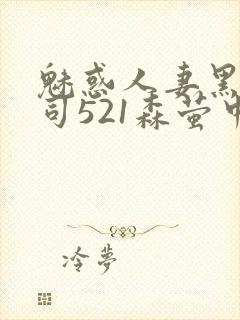 魅惑人妻黑
司521森萤中
冷夢